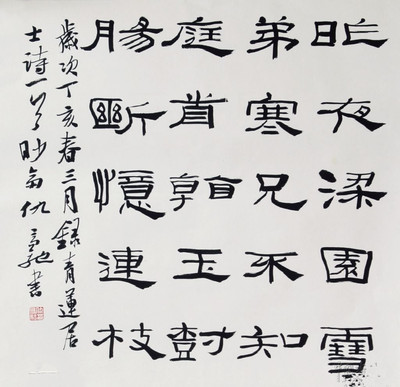 昨夜梁園雪
弟寒兄不知
庭前看玉樹
腸斷憶連枝
歲次丁亥春三月錄青蓮居
士詩一首 仇高馳書